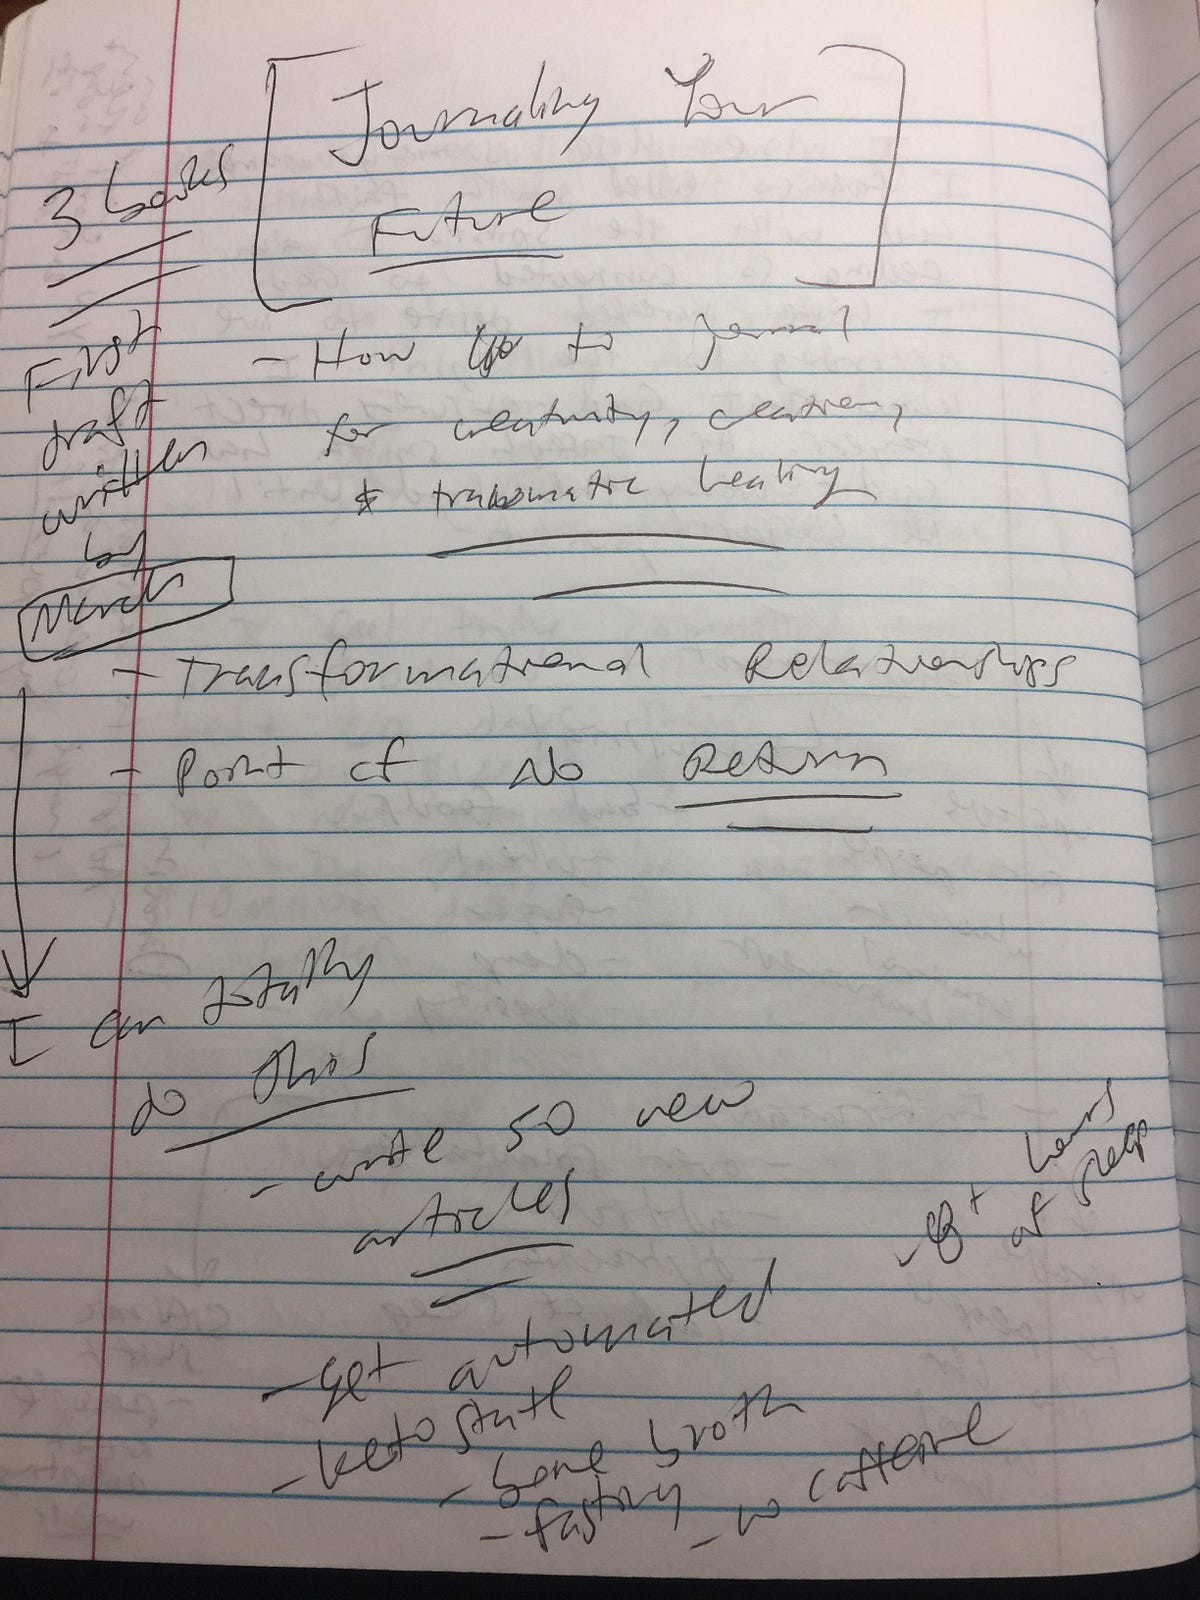 Journaling Your
Future
3 books
First
draft
written
by
March
- How to journal
for creativity, creation,
& traumatic healing
- Transformational Relationships
- Point of No Return
I can totally
do this
- write 50 new
articles
- 8+ hours
of sleep
- get automated
- keto state
- bone broth
- fasting
- no caffeine